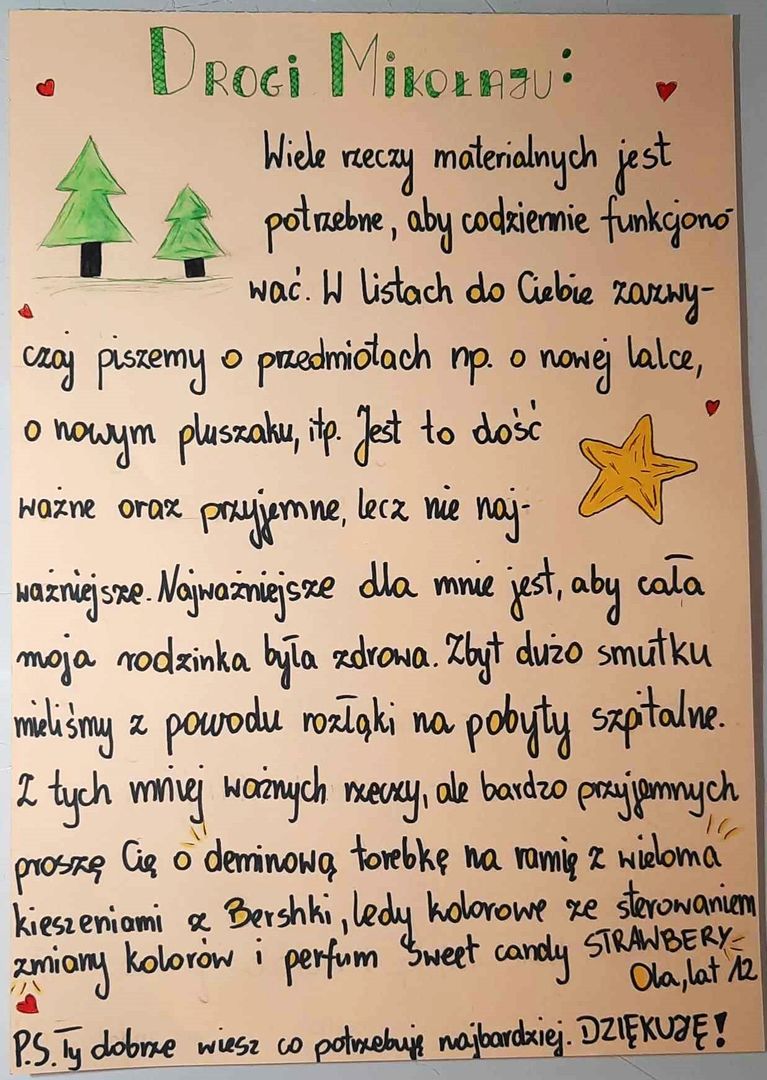 DROGI MIKOŁAJU:
Wiele rzeczy materialnych jest
potrzebne, aby codziennie funkcjono
wać. W listach do Ciebie zazwy-
czaj piszemy o przedmiotach np. o nowej lalce,
o nowym pluszaku, itp. Jest to dość
ważne oraz przyjemne, lecz nie naj-
ważniejsze. Najważniejsze dla mnie jest, aby cała
moja rodzinka była zdrowa. Zbyt dużo smutku
mieliśmy z powodu rozłąki na pobyty szpitalne.
Z tych mniej ważnych rzeczy, ale bardzo przyjemnych
proszę Cię o deminową torebkę na ramię z wieloma
kieszeniami z Bershki, ledy kolorowe ze sterowaniem
zmiany kolorów i perfum Sweet candy STRAWBERY
Ola, lat 12
P.S. Ty dobrze wiesz co potrzebuję najbardziej. DZIĘKUJĘ!